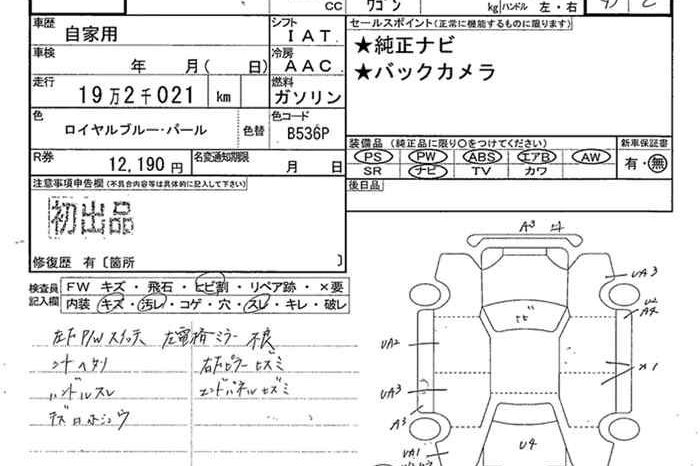 CC
ワゴン
kg ハンドル 左・右
車歴 自家用
シフト IAT
セールスポイント(正常に機能するものに限ります)
★純正ナビ
★バックカメラ
車検 年 月( 日)
冷房 AAC
走行 19万2千021 km
燃料 ガソリン
色 ロイヤルブルー・パール 色替
色コード B536P
装備品(純正品に限り○をつけてください) 新車保証書
PS PW ABS エアB AW 有・無
SR ナビ TV カワ
R券 12,190円 名変通知期限 月 日
後日品
注意事項申告欄(不具合内容等は具体的に記入して下さい)
初出品
修復歴 有〔箇所 〕
検査員記入欄
FW キズ・飛石・ヒビ割・リペア跡・×要
内装・キズ・汚レ・コゲ・穴・スレ・キレ・破レ
左F P/W スイッチ 左電格ミラー 不良
シートヘタリ
ハンドルスレ
エンドパネルキズミ
A3
UA3
A4
ヒビ
UA2
X1
UA3
A3
U4
UA1